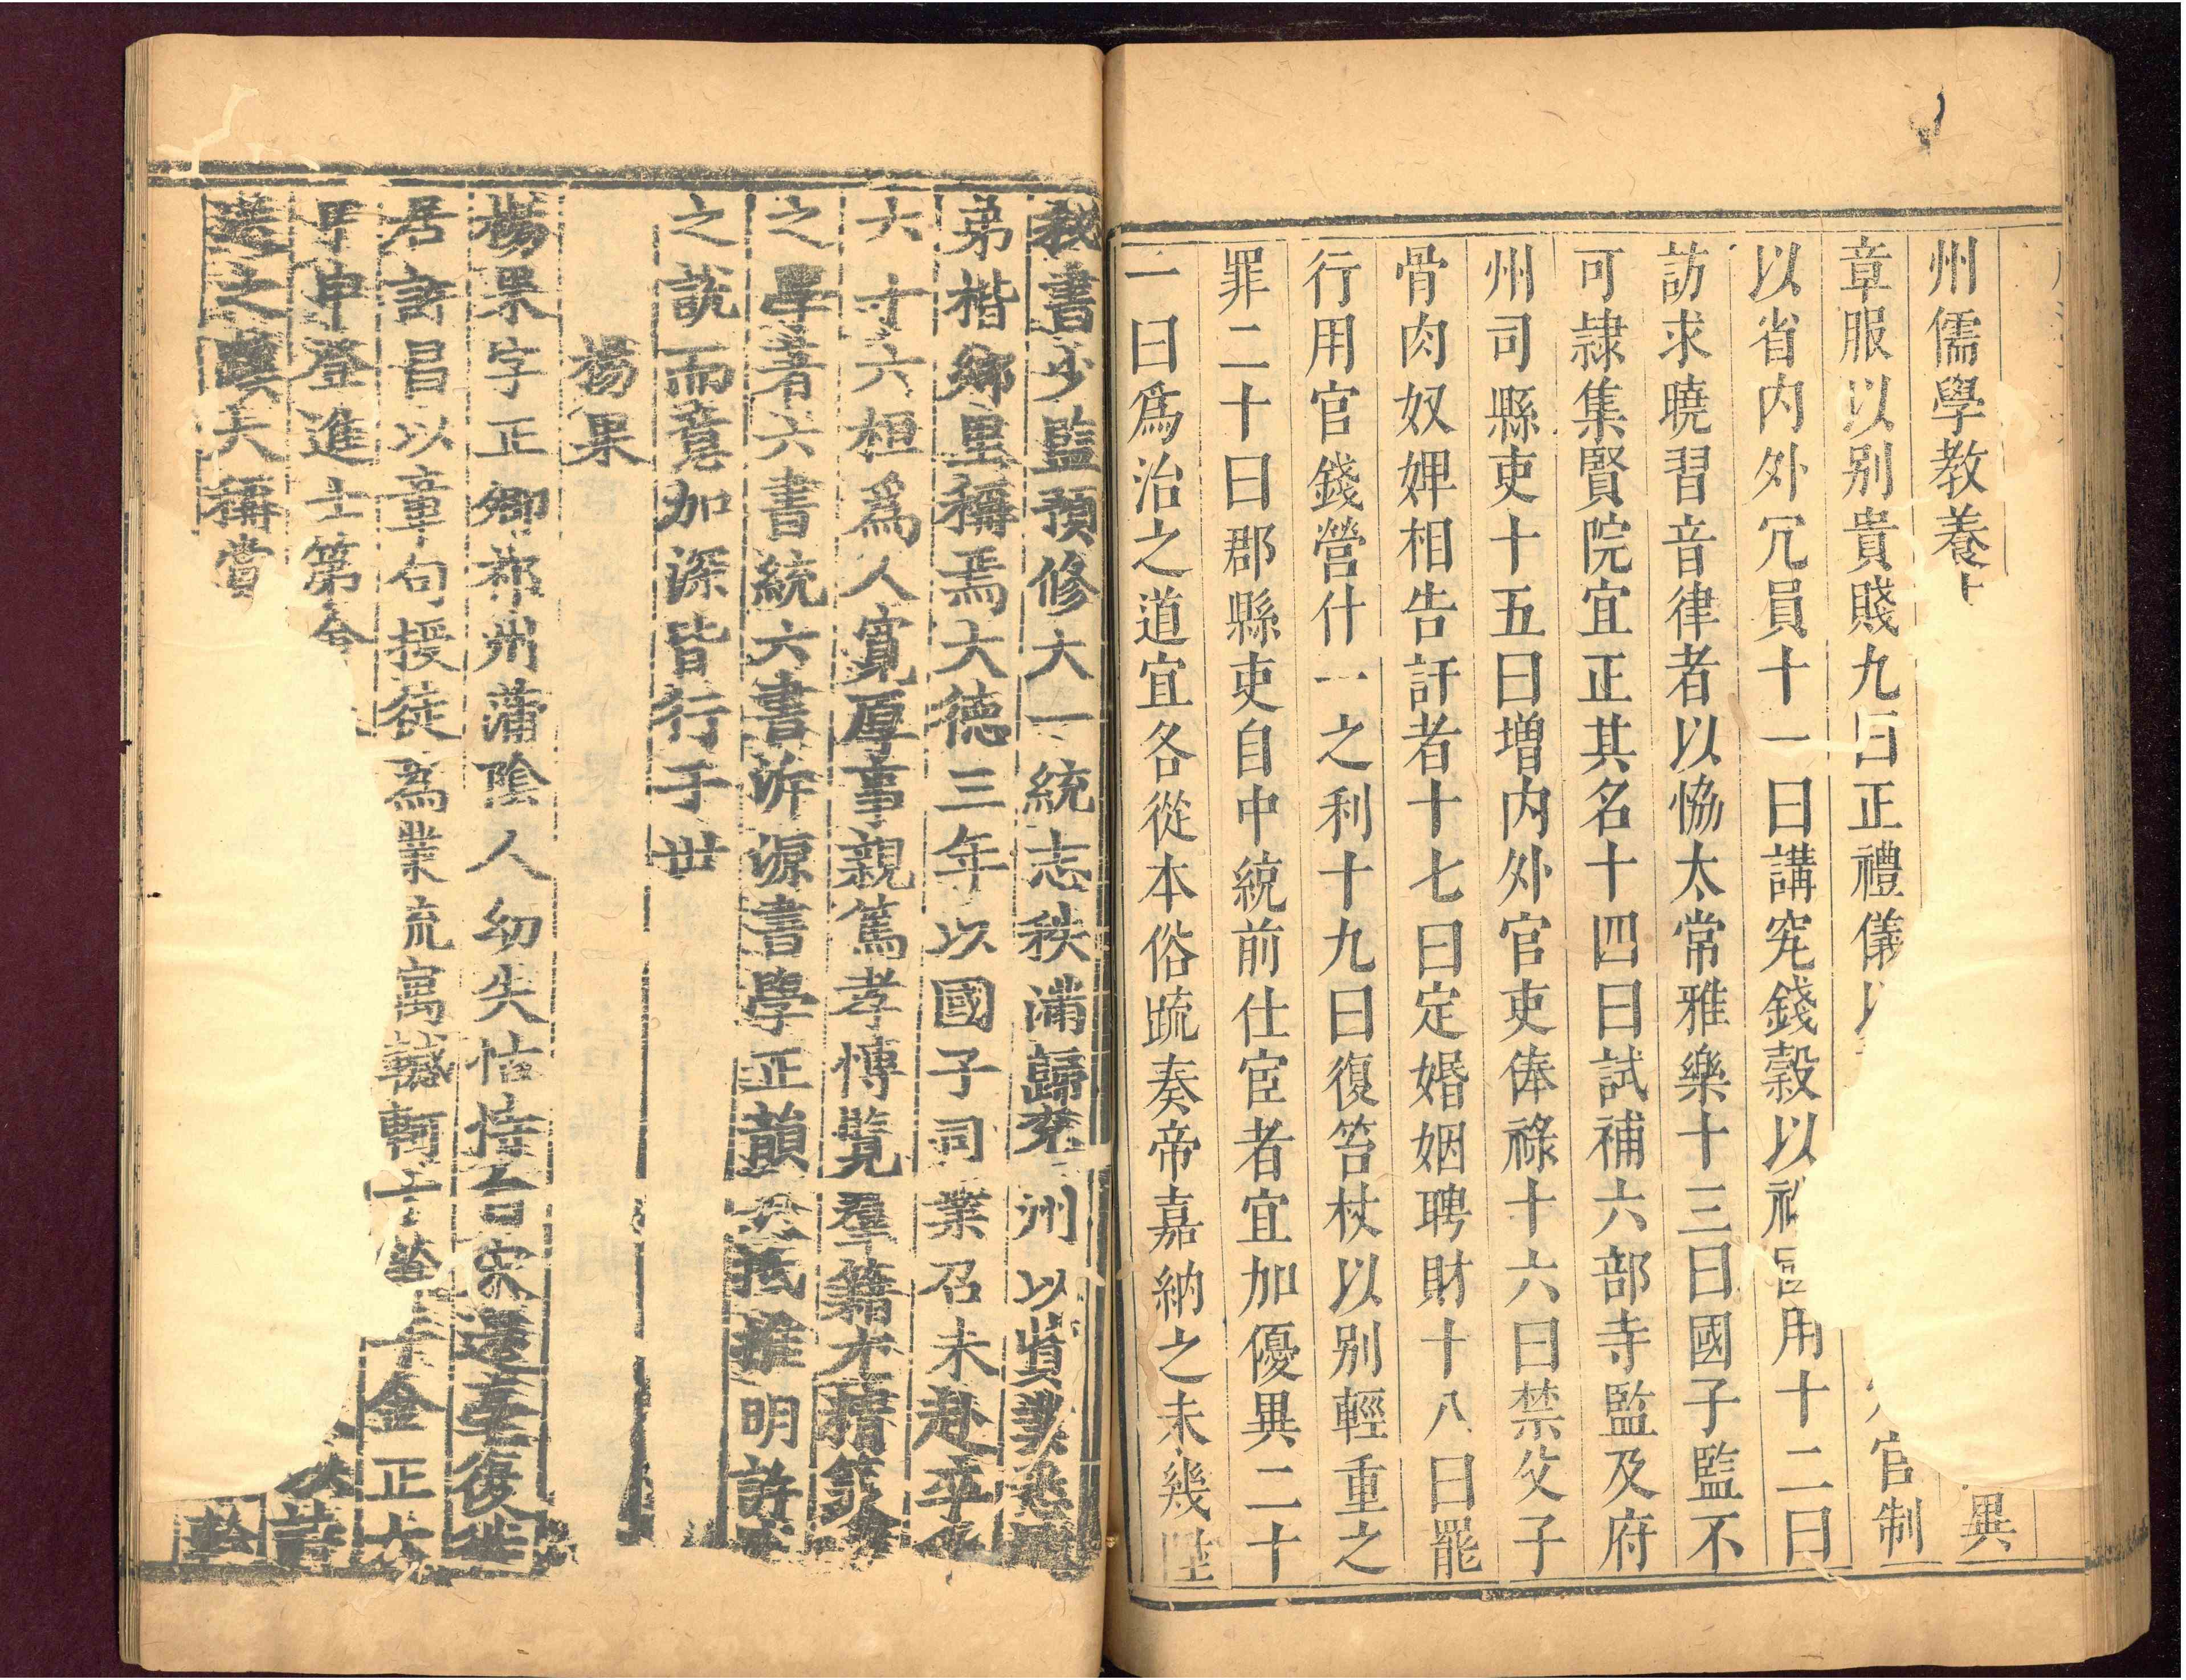 州儒學教養
章服以别貴賤九曰正禮儀 官制
以省内外冗員十一曰講究錢穀以 用十二曰
訪求曉習音律者以恊太常雅樂十三曰國子監不
可隷集賢院宜正其名十四曰試補六部寺監及府
州司縣吏十五曰增内外官吏俸祿十六曰禁父子
骨肉奴婢相告訐者十七曰定婚姻聘財十八曰罷
行用官錢營什一之利十九曰復笞杖以别輕重之
罪二十曰郡縣吏自中統前仕宦者宜加優異二十
一曰爲治之道宜各從本俗疏奏帝嘉納之未幾陞
秘書少監預修大一統志秩滿歸兖州以貲業
弟楷鄉里稱焉大德三年以國子司業召未赴卒年
六十六桓爲人寬厚事親篤孝博覽羣籍尤精篆籀
之學著六書統六書泝源書學正韻大抵推明許
之說而意加深皆行于世
楊果
楊果字正卿祁州蒲陰人幼失怙恃自宋遷亳復徙
居許昌以章句授徒為業流寓轗軻十餘年金正大
甲申登進士第會
送之果 大稱賞